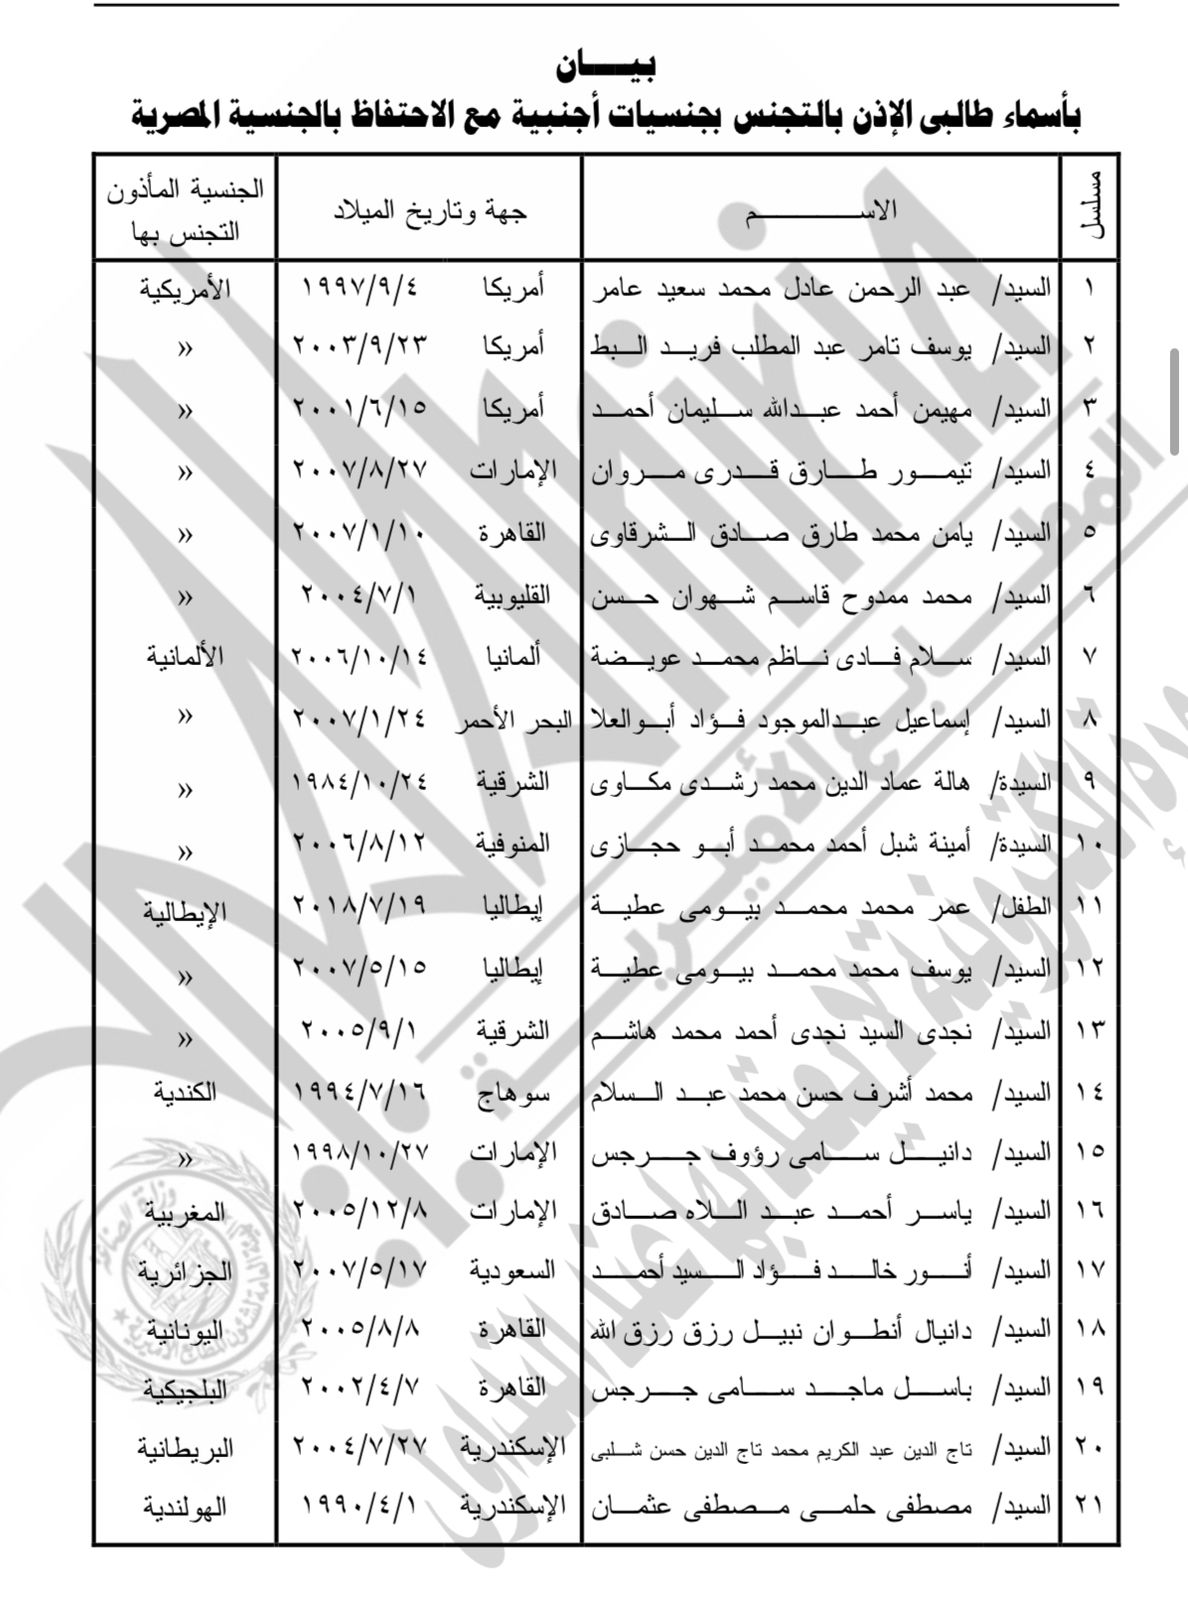 بيـــان
بأسماء طالبى الإذن بالتجنس بجنسيات أجنبية مع الاحتفاظ بالجنسية المصرية
مسلسل الاســـــم جهة وتاريخ الميلاد الجنسية المأذون التجنس بها
١ السيد/ عبد الرحمن عادل محمد سعيد عامر أمريكا ١٩٩٧/٩/٤ الأمريكية
٢ السيد/ يوسف تامر عبد المطلب فريد البط أمريكا ٢٠٠٣/٩/٢٣ »
٣ السيد/ مهيمن أحمد عبدالله سليمان أحمد أمريكا ٢٠٠١/٦/١٥ »
٤ السيد/ تيمور طارق قدرى مروان الإمارات ٢٠٠٧/٨/٢٧ »
٥ السيد/ يامن محمد طارق صادق الشرقاوى القاهرة ٢٠٠٧/١/١٠ »
٦ السيد/ محمد ممدوح قاسم شهوان حسن القليوبية ٢٠٠٤/٧/١ »
٧ السيد/ سلام فادى ناظم محمد عويضة ألمانيا ٢٠٠٦/١٠/١٤ الألمانية
٨ السيد/ إسماعيل عبدالموجود فؤاد أبوالعلا البحر الأحمر ٢٠٠٧/١/٢٤ »
٩ السيدة/ هالة عماد الدين محمد رشدى مكاوى الشرقية ١٩٨٤/١٠/٢٤ »
١٠ السيدة/ أمينة شبل أحمد محمد أبو حجازى المنوفية ٢٠٠٦/٨/١٢ »
١١ الطفل/ عمر محمد محمد بيومى عطية إيطاليا ٢٠١٨/٧/١٩ الإيطالية
١٢ السيد/ يوسف محمد محمد بيومى عطية إيطاليا ٢٠٠٧/٥/١٥ »
١٣ السيد/ نجدى السيد نجدى أحمد محمد هاشم الشرقية ٢٠٠٥/٩/١ »
١٤ السيد/ محمد أشرف حسن محمد عبد السلام سوهاج ١٩٩٤/٧/١٦ الكندية
١٥ السيد/ دانيل سامى رؤوف جرجس الإمارات ١٩٩٨/١٠/٢٧ »
١٦ السيد/ ياسر أحمد عبد اللاه صادق الإمارات ٢٠٠٥/١٢/٨ المغربية
١٧ السيد/ أنور خالد فؤاد السيد أحمد السعودية ٢٠٠٧/٥/١٧ الجزائرية
١٨ السيد/ دانيال أنطوان نبيل رزق رزق الله القاهرة ٢٠٠٥/٨/٨ اليونانية
١٩ السيد/ باسل ماجد سامى جرجس القاهرة ٢٠٠٢/٤/٧ البلجيكية
٢٠ السيد/ تاج الدين عبد الكريم محمد تاج الدين حسن شلبى الإسكندرية ٢٠٠٤/٧/٢٧ البريطانية
٢١ السيد/ مصطفى حلمى مصطفى عثمان الإسكندرية ١٩٩٠/٤/١ الهولندية